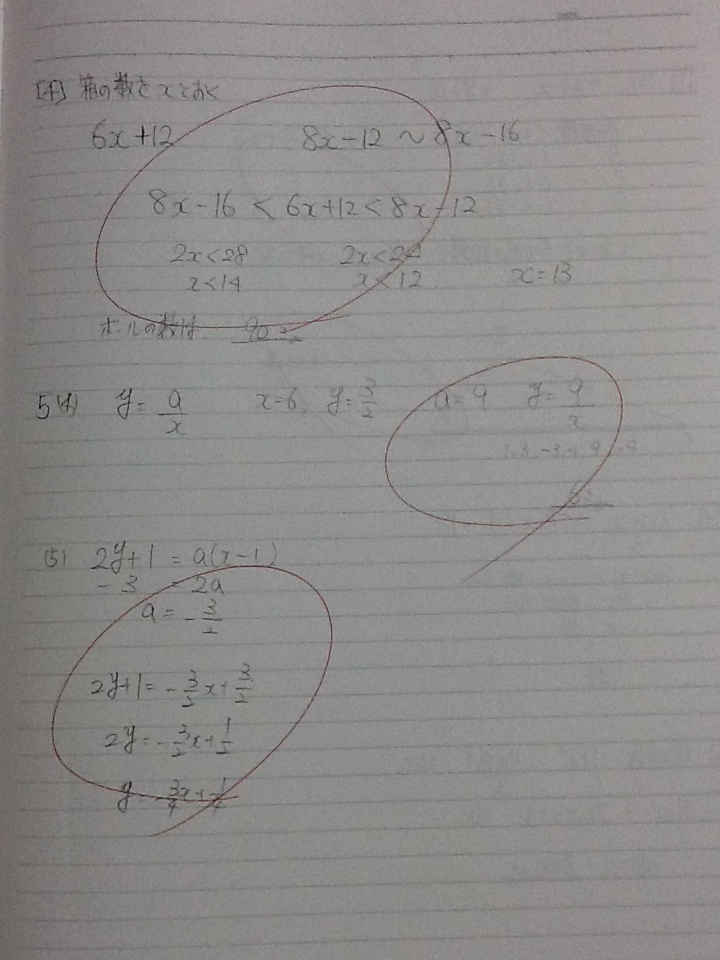 [4] 箱の数を x とおく
6x+12 8x-12 ~ 8x-16
8x-16 < 6x+12 < 8x-12
2x<28 2x<24
x<14 x<12 x=13
ボールの数は 90
5 (4) y= a/x x=6, y=3/2 a=9 y=9/x
(5) 2y+1 = a(x-1)
-3 = 2a
a = -3/2
2y+1= -3/2x+3/2
2y= -3/2x+1/2
y= -3x/4+1/4